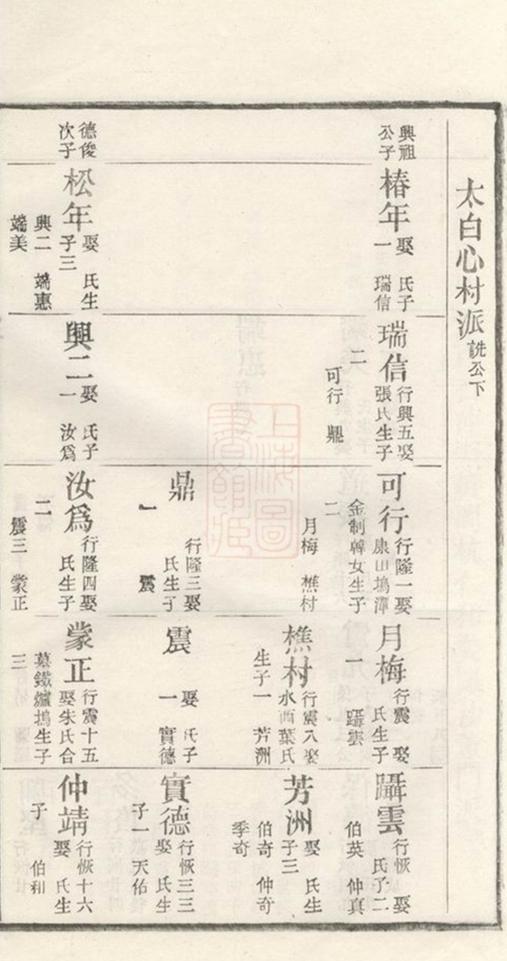 太白心村派 詵公下
興祖公子
椿年 娶 氏子一 瑞信
瑞信 行興五娶張氏生子二 可行 鼎
可行 行隆一娶康山塢潭金制韓女生子二 月梅 樵村
月梅 行震 娶 氏生子一 躡雲
躡雲 行恢 娶 氏子二 伯英 仲真
樵村 行震八娶水西葉氏生子一 芳洲
芳洲 娶 氏生子三 伯奇 仲奇 季奇
鼎 行隆三娶 氏生子一 震
震 娶 氏子一 實德
實德 行恢三三娶 氏生子一 天佑
德俊次子
松年 娶 氏生子三 興二 端惠 端美
興二 娶 氏子一 汝爲
汝爲 行隆四娶 氏生子二 震三 蒙正
蒙正 行震十五娶朱氏合墓鐵爐塢生子三
仲靖 行恢十六娶 氏生子 伯和
上海圖書館藏